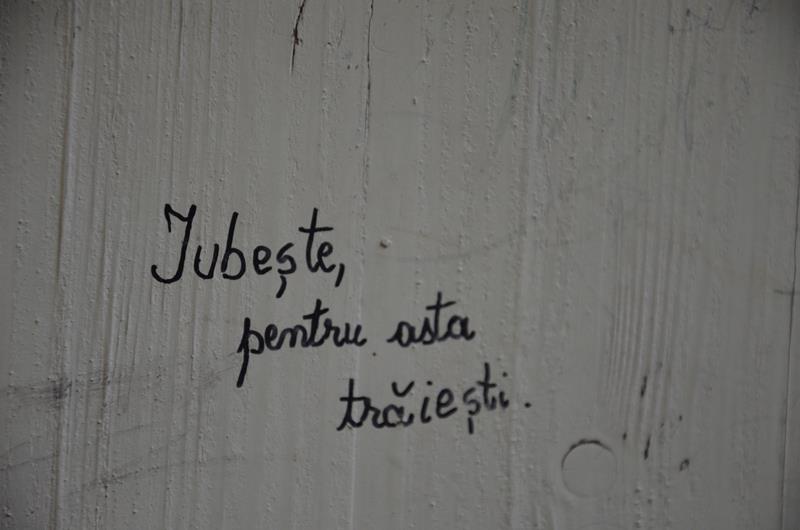 Iubește,
pentru asta
trăiești.